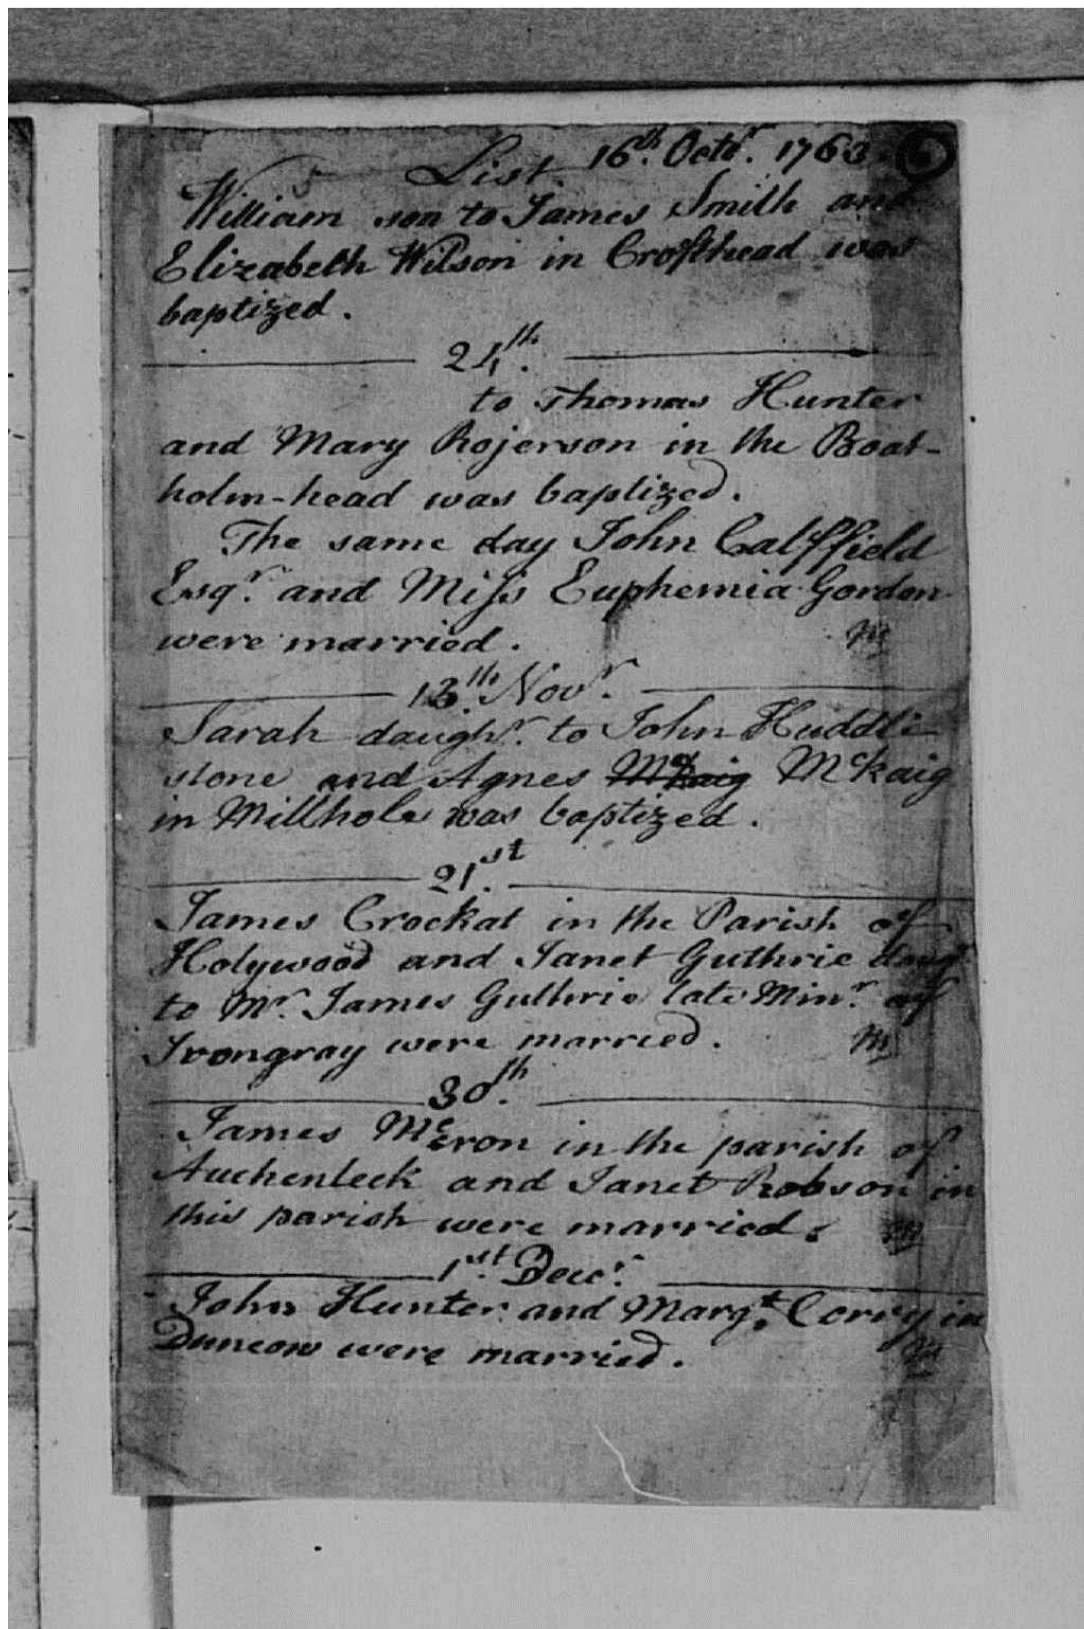 List 16th. Octor. 1763.
William son to James Smith and
Elizabeth Wilson in Crofthead was
baptized.
24th.
to Thomas Hunter
and Mary Rojerson in the Boat-
holm-head was baptized.
The same day John Calffield
Esqr. and Miss Euphemia Gordon
were married. M
13th. Novr.
Sarah daughr. to John Huddle
stone and Agnes McKaig McKaig
in Millhole was baptized.
21st.
James Crockat in the Parish of
Holywood and Janet Guthrie daugr
to Mr. James Guthrie late Minr. of
Irongray were married. M
30th.
James in the parish of
Auchenleck and Janet Robson in
this parish were married. M
1st. Decr.
John Hunter and Margt. Corry in
Duncow were married. M